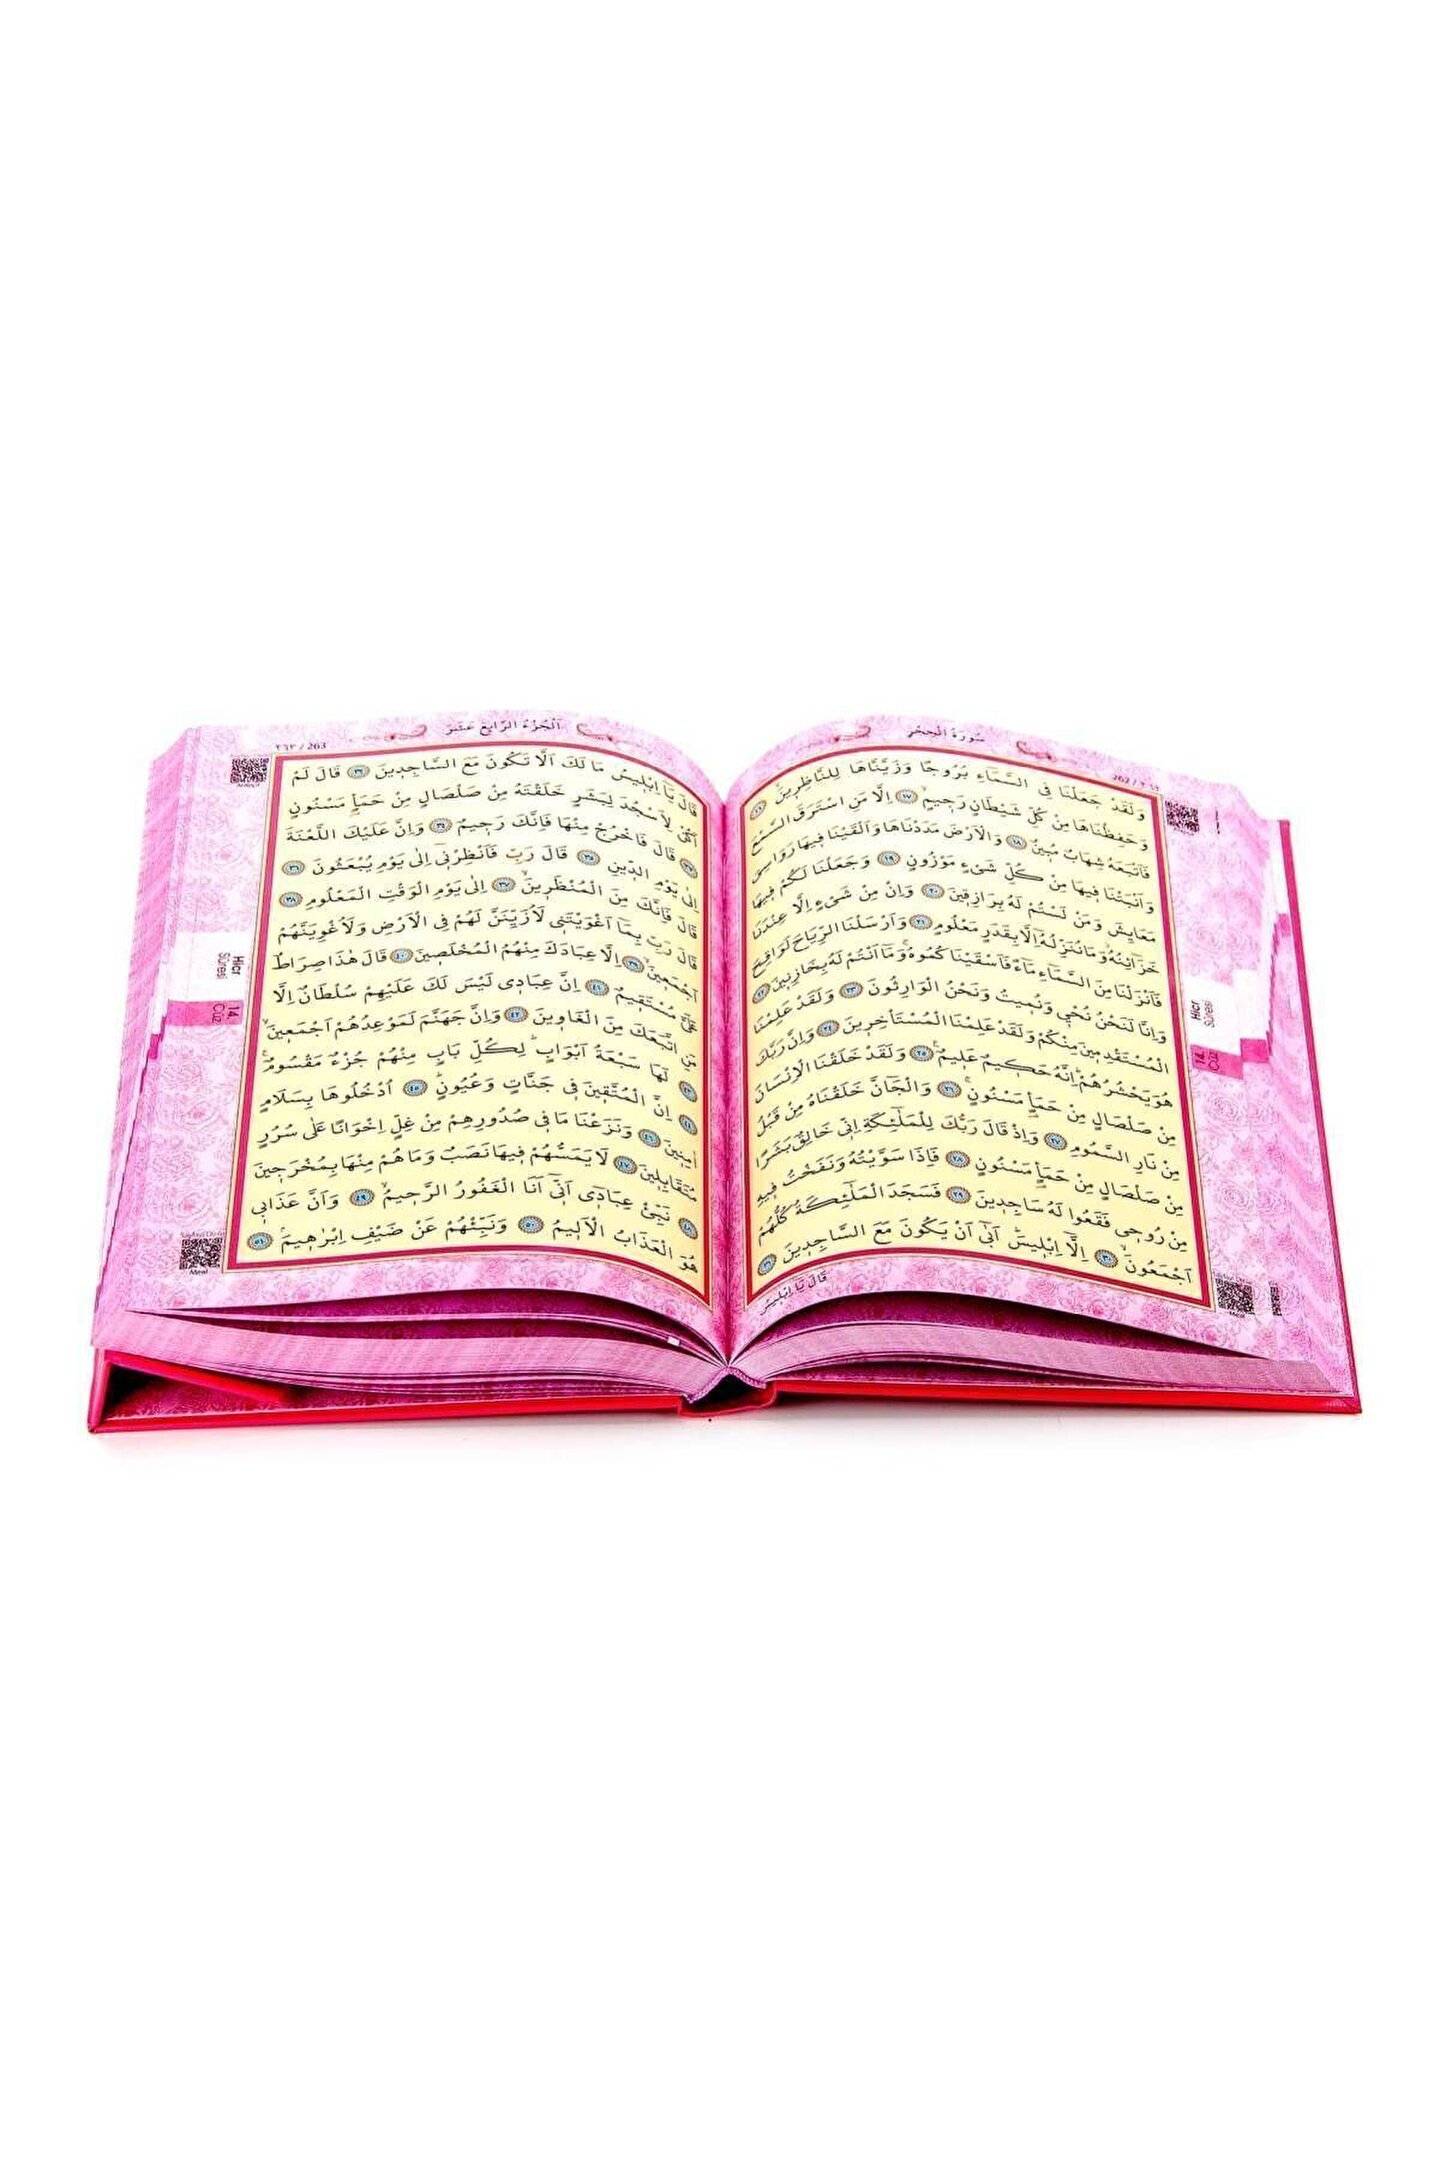 سُورَةُ الْحِجْرِ
262 / ٢٦٢
وَلَقَدْ جَعَلْنَا فِي السَّمَاءِ بُرُوجًا وَزَيَّنَّاهَا لِلنَّاظِرِينَ ﴿١٦﴾
وَحَفِظْنَاهَا مِنْ كُلِّ شَيْطَانٍ رَجِيمٍ ﴿١٧﴾ اِلَّا مَنِ اسْتَرَقَ السَّمْعَ
فَاَتْبَعَهُ شِهَابٌ مُبِينٌ ﴿١٨﴾ وَالْاَرْضَ مَدَدْنَاهَا وَاَلْقَيْنَا فِيهَا رَوَاسِيَ
وَاَنْبَتْنَا فِيهَا مِنْ كُلِّ شَيْءٍ مَوْزُونٍ ﴿١٩﴾ وَجَعَلْنَا لَكُمْ فِيهَا
مَعَايِشَ وَمَنْ لَسْتُمْ لَهُ بِرَازِقِينَ ﴿٢٠﴾ وَاِنْ مِنْ شَيْءٍ اِلَّا عِنْدَنَا
خَزَائِنُهُ وَمَا نُنَزِّلُهُ اِلَّا بِقَدَرٍ مَعْلُومٍ ﴿٢١﴾ وَاَرْسَلْنَا الرِّيَاحَ لَوَاقِحَ
فَاَنْزَلْنَا مِنَ السَّمَاءِ مَاءً فَاَسْقَيْنَاكُمُوهُ وَمَا اَنْتُمْ لَهُ بِخَازِنِينَ ﴿٢٢﴾
وَاِنَّا لَنَحْنُ نُحْيِي وَنُمِيتُ وَنَحْنُ الْوَارِثُونَ ﴿٢٣﴾ وَلَقَدْ عَلِمْنَا
الْمُسْتَقْدِمِينَ مِنْكُمْ وَلَقَدْ عَلِمْنَا الْمُسْتَأْخِرِينَ ﴿٢٤﴾ وَاِنَّ رَبَّكَ
هُوَ يَحْشُرُهُمْ اِنَّهُ حَكِيمٌ عَلِيمٌ ﴿٢٥﴾ وَلَقَدْ خَلَقْنَا الْاِنْسَانَ
مِنْ صَلْصَالٍ مِنْ حَمَاٍ مَسْنُونٍ ﴿٢٦﴾ وَالْجَانَّ خَلَقْنَاهُ مِنْ قَبْلُ
مِنْ نَارِ السَّمُومِ ﴿٢٧﴾ وَاِذْ قَالَ رَبُّكَ لِلْمَلٰئِكَةِ اِنِّي خَالِقٌ بَشَرًا
مِنْ صَلْصَالٍ مِنْ حَمَاٍ مَسْنُونٍ ﴿٢٨﴾ فَاِذَا سَوَّيْتُهُ وَنَفَخْتُ فِيهِ
مِنْ رُوحِي فَقَعُوا لَهُ سَاجِدِينَ ﴿٢٩﴾ فَسَجَدَ الْمَلٰئِكَةُ كُلُّهُمْ
اَجْمَعُونَ ﴿٣٠﴾ اِلَّا اِبْلِيسَ اَبٰى اَنْ يَكُونَ مَعَ السَّاجِدِينَ ﴿٣١﴾
قَالَ يَا اِبْلِيسُ
Hicr
Sûresi
14.
Cüz
Meal
اَلْجُزْءُ الرَّابِعَ عَشَرَ
٢٦٣ / 263
قَالَ يَا اِبْلِيسُ مَا لَكَ اَلَّا تَكُونَ مَعَ السَّاجِدِينَ ﴿٣٢﴾ قَالَ لَمْ
اَكُنْ لِاَسْجُدَ لِبَشَرٍ خَلَقْتَهُ مِنْ صَلْصَالٍ مِنْ حَمَاٍ مَسْنُونٍ
﴿٣٣﴾ قَالَ فَاخْرُجْ مِنْهَا فَاِنَّكَ رَجِيمٌ ﴿٣٤﴾ وَاِنَّ عَلَيْكَ اللَّعْنَةَ
اِلٰى يَوْمِ الدِّينِ ﴿٣٥﴾ قَالَ رَبِّ فَاَنْظِرْنِي اِلٰى يَوْمِ يُبْعَثُونَ ﴿٣٦﴾
قَالَ فَاِنَّكَ مِنَ الْمُنْظَرِينَ ﴿٣٧﴾ اِلٰى يَوْمِ الْوَقْتِ الْمَعْلُومِ ﴿٣٨﴾
قَالَ رَبِّ بِمَا اَغْوَيْتَنِي لَاُزَيِّنَنَّ لَهُمْ فِي الْاَرْضِ وَلَاُغْوِيَنَّهُمْ
اَجْمَعِينَ ﴿٣٩﴾ اِلَّا عِبَادَكَ مِنْهُمُ الْمُخْلَصِينَ ﴿٤٠﴾ قَالَ هٰذَا صِرَاطٌ
عَلَيَّ مُسْتَقِيمٌ ﴿٤١﴾ اِنَّ عِبَادِي لَيْسَ لَكَ عَلَيْهِمْ سُلْطَانٌ اِلَّا
مَنِ اتَّبَعَكَ مِنَ الْغَاوِينَ ﴿٤٢﴾ وَاِنَّ جَهَنَّمَ لَمَوْعِدُهُمْ اَجْمَعِينَ
﴿٤٣﴾ لَهَا سَبْعَةُ اَبْوَابٍ لِكُلِّ بَابٍ مِنْهُمْ جُزْءٌ مَقْسُومٌ
﴿٤٤﴾ اِنَّ الْمُتَّقِينَ فِي جَنَّاتٍ وَعُيُونٍ ﴿٤٥﴾ اُدْخُلُوهَا بِسَلَامٍ
اٰمِنِينَ ﴿٤٦﴾ وَنَزَعْنَا مَا فِي صُدُورِهِمْ مِنْ غِلٍّ اِخْوَانًا عَلٰى سُرُرٍ
مُتَقَابِلِينَ ﴿٤٧﴾ لَا يَمَسُّهُمْ فِيهَا نَصَبٌ وَمَا هُمْ مِنْهَا بِمُخْرَجِينَ
﴿٤٨﴾ نَبِّئْ عِبَادِي اَنِّي اَنَا الْغَفُورُ الرَّحِيمُ ﴿٤٩﴾ وَاَنَّ عَذَابِي
هُوَ الْعَذَابُ الْاَلِيمُ ﴿٥٠﴾ وَنَبِّئْهُمْ عَنْ ضَيْفِ اِبْرٰهِيمَ ﴿٥١﴾
Hicr
Sûresi
14.
Cüz
Meal